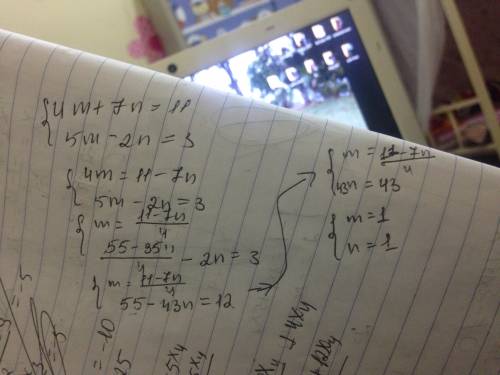 4m + 7n = 11
5m - 2n = 3
4m = 11 - 7n
5m - 2n = 3
m = (11 - 7n)/4
(55 - 35n)/4 - 2n = 3
m = (11 - 7n)/4
55 - 43n = 12
m = (11 - 7n)/4
43n = 43
m = 1
n = 1